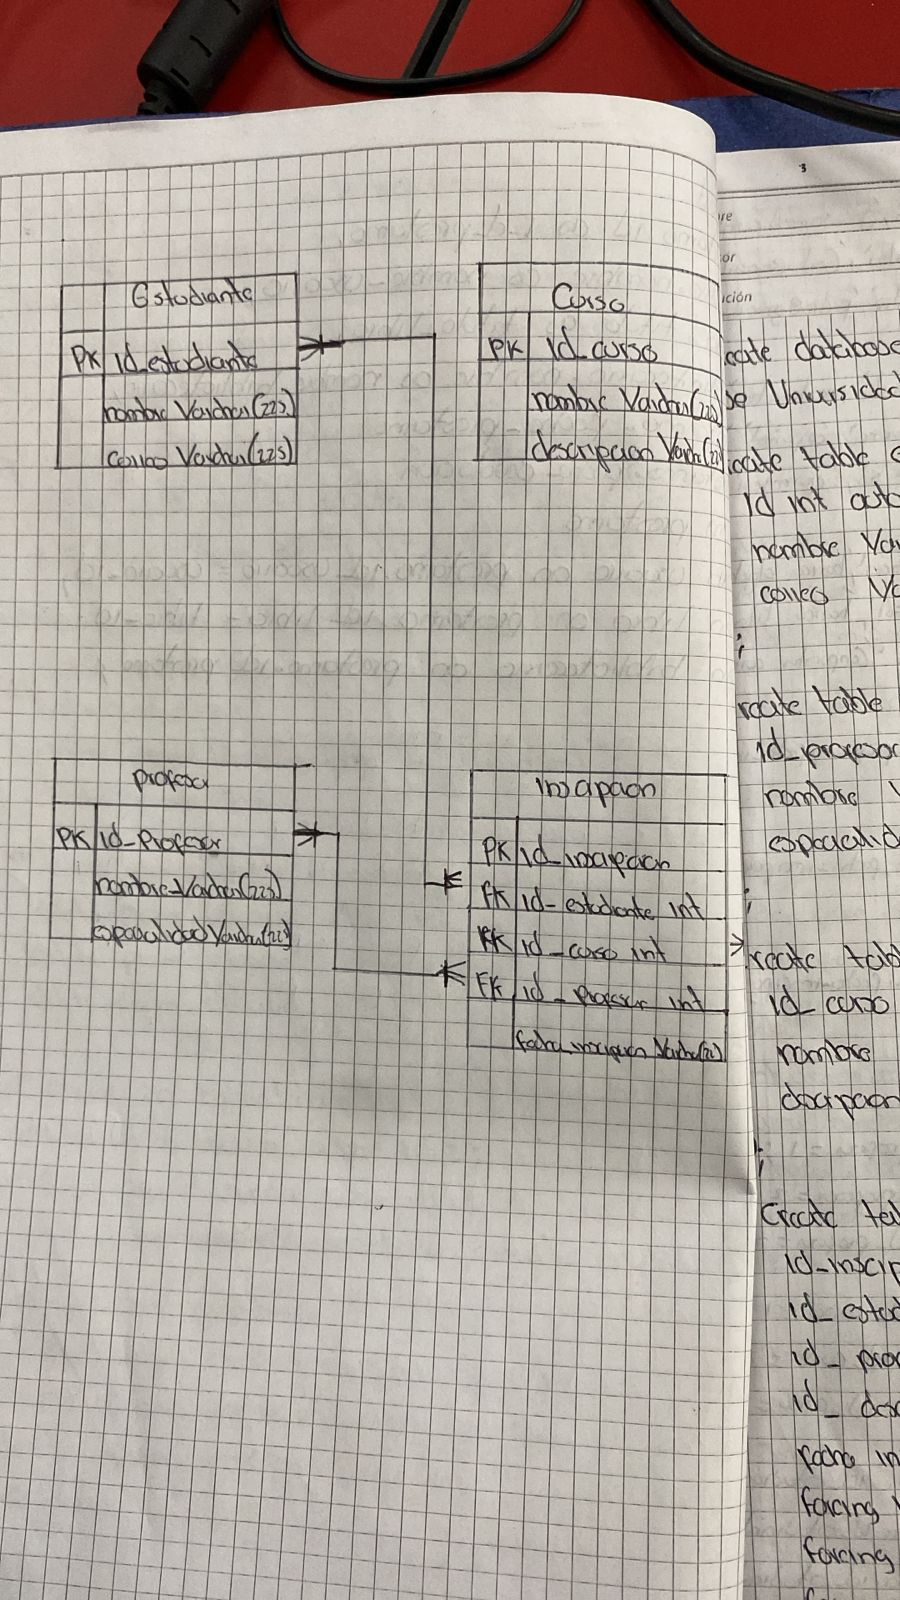 Estudiante
PK id_estudiante
nombre Varchar(225)
correo Varchar(225)
Curso
PK id_curso
nombre Varchar(225)
descripcion Varchar(22
profesor
PK id_Profesor
nombre Varchar(225)
especialidad Varchar(225)
inscripcion
PK id_inscripcion
FK id_estudiante int
FK id_curso int
FK id_Profesor int
fecha_inscripcion Varchar(22)
3
re
or
ción
eate database
se Universidad
reate table
id int auto
nombre Va
correo Va
;
reate table
id_profesor
nombre V
especialid
;
reate tab
id_curso
nombre
descripcion
;
Create ta
id_inscrip
id_estud
id_pro
id_
fecha in
foreing
foreing